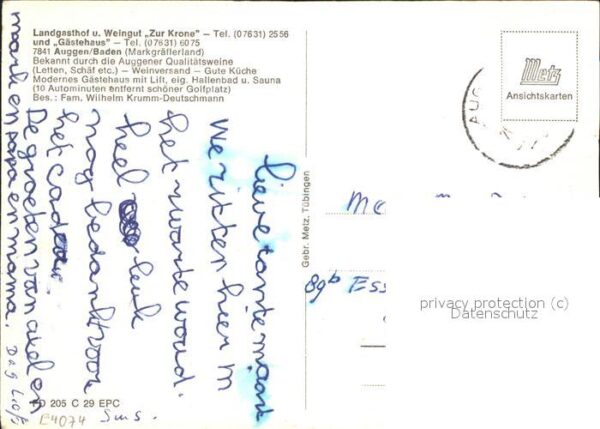 Landgasthof u. Weingut „Zur Krone" – Tel. (07631) 2556
und „Gästehaus" – Tel. (07631) 6075
7841 Auggen/Baden (Markgräflerland)
Bekannt durch die Auggener Qualitätsweine
(Letten, Schäf etc.) – Weinversand – Gute Küche
Modernes Gästehaus mit Lift, eig. Hallenbad u. Sauna
(10 Autominuten entfernt schöner Golfplatz)
Bes.: Fam. Wilhelm Krumm-Deutschmann
lieve tante miant
We zitten hier in
het zwarte woud.
heel leuk
nog bedankt voor
het cadeau.
De groeten van
mark en papa en mama.
Gebr. Metz, Tübingen
Metz
Ansichtskarten
AUG
89b Ess
privacy protection (c)
Datenschutz
PD 205 C 29 EPC
E4074 Sms.